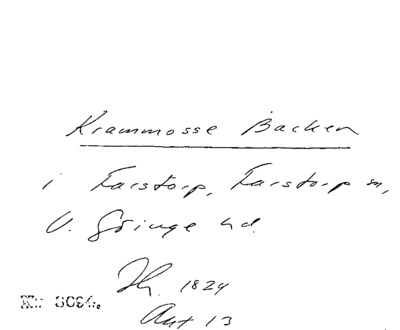 Krammosse Backen
i Farstorp, Farstorp sn,
V. Göinge hd.
1824
Akt 13